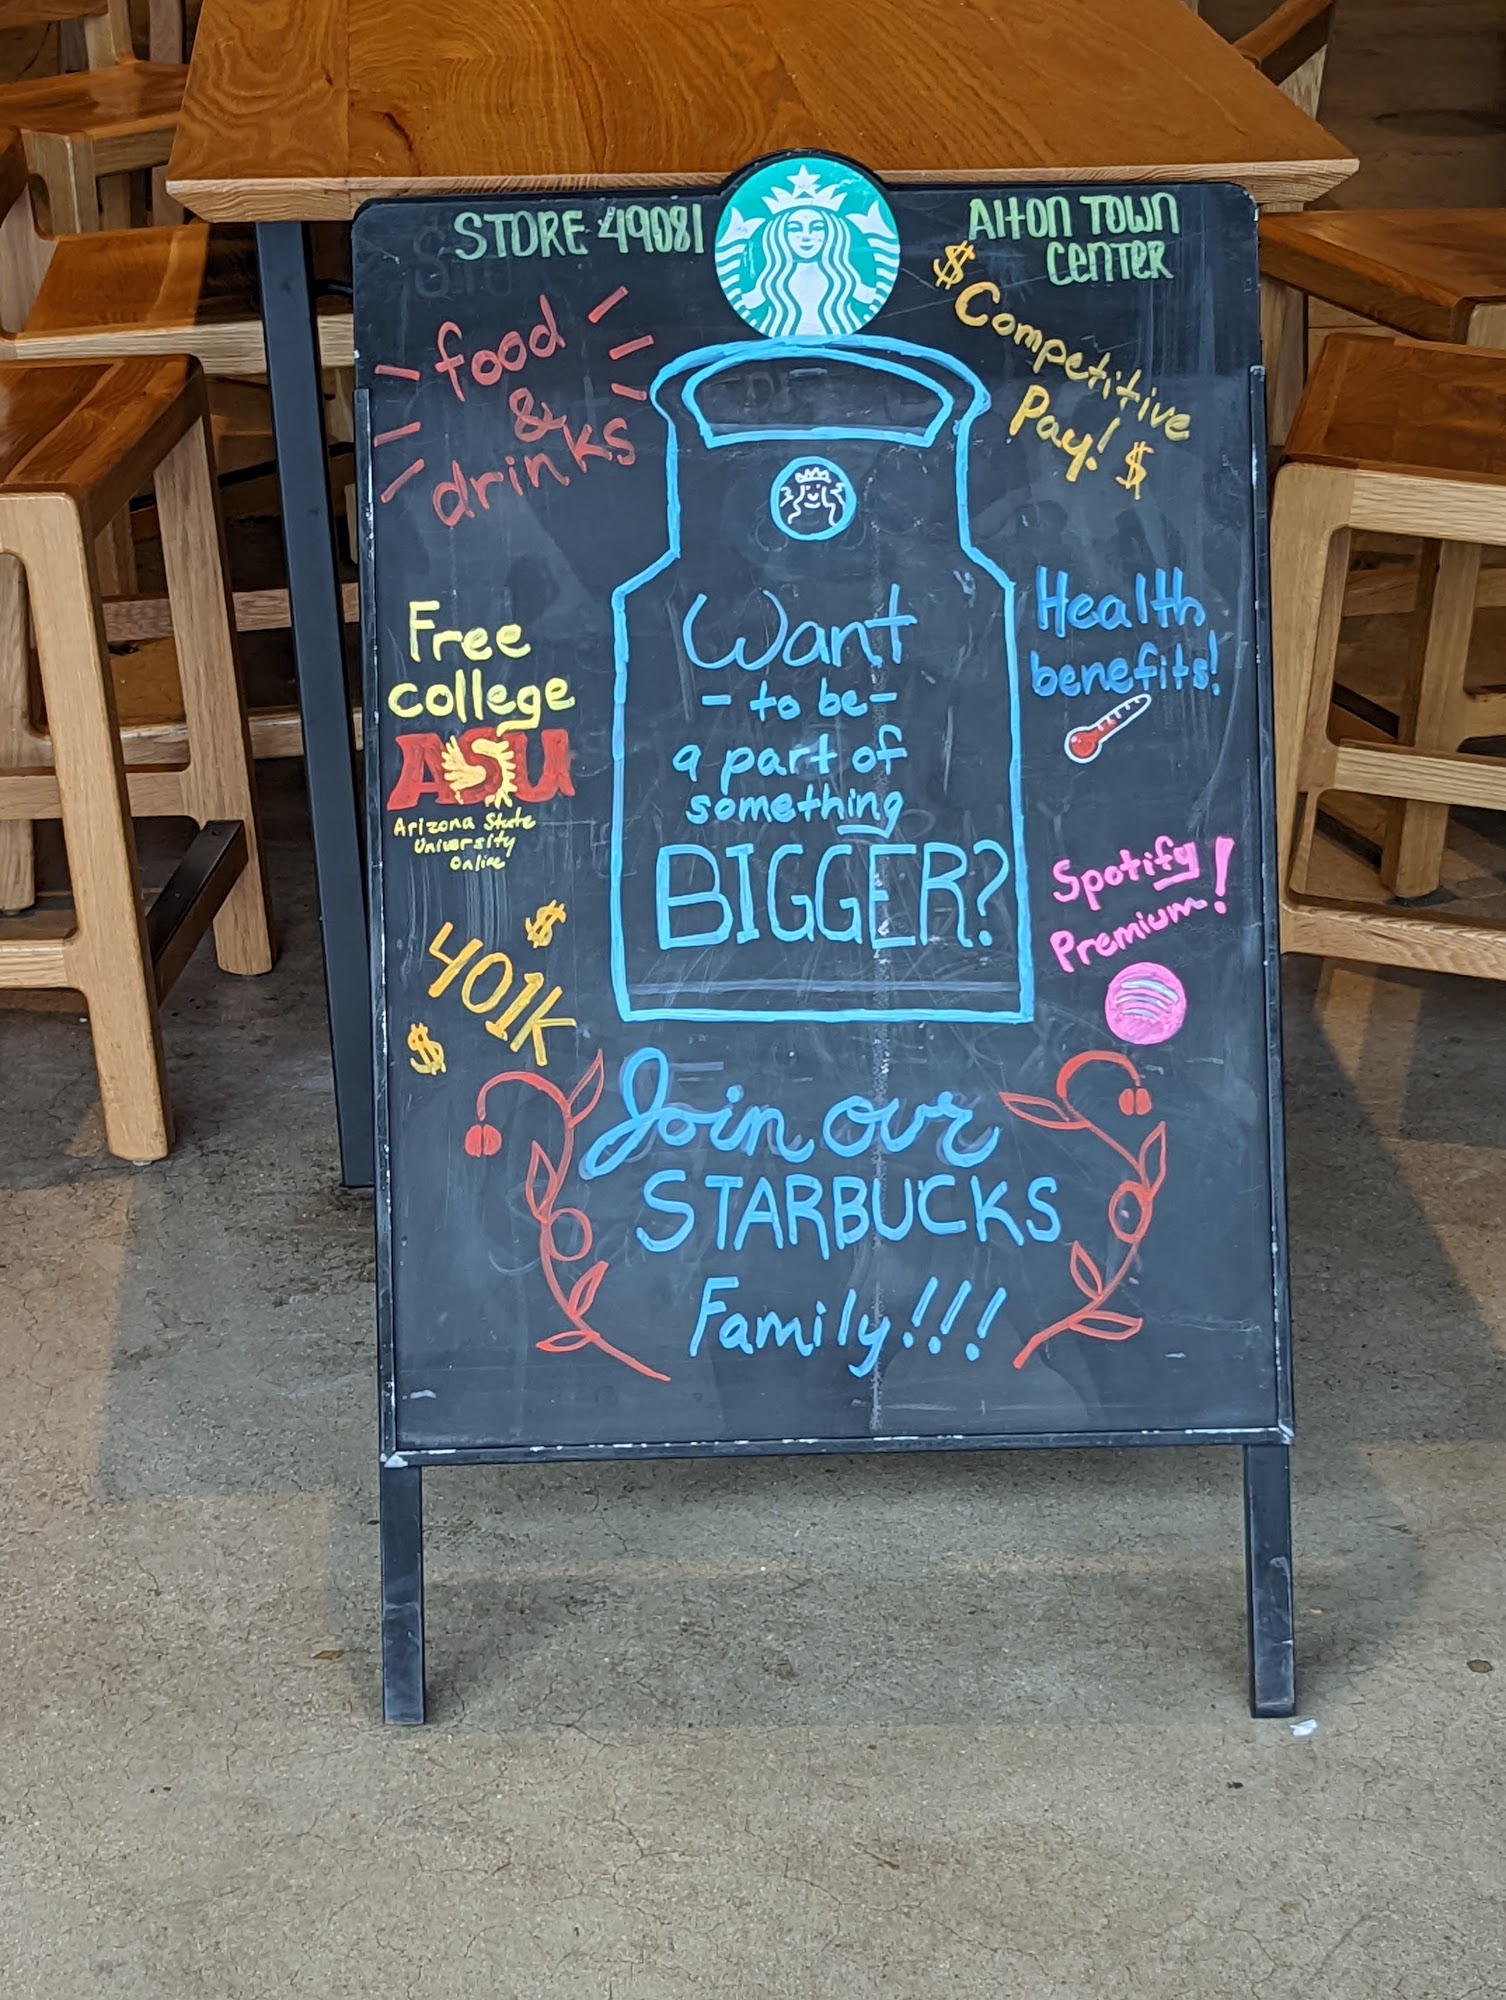 STORE 49081
Alton Town
Center
food
&
drinks
$ Competitive
Pay! $
Free
college
ASU
Arizona State
University
Online
Want
- to be -
a part of
something
BIGGER?
Health
benefits!
$
401k
$
Spotify
Premium!
Join our
STARBUCKS
Family!!!